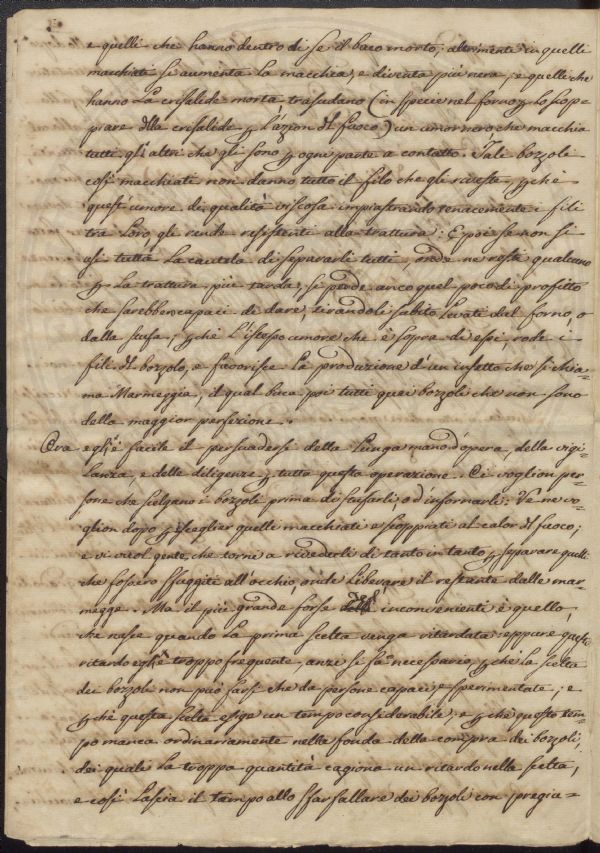 e quelli che hanno dentro di se il baco morto; altrimenti in quelli
macchiati si aumenta la macchia, e diventa più nera, e quelli che
hanno la crisalide morta, trasudano (in specie nel forno p lo scop-
piare dlla crisalide p l'azion dl fuoco) un umor nero che macchia
tutti gli altri che gli sono p ogni parte a contatto. Tali bozzoli
così macchiati non danno tutto il filo che gli riveste, pchè
quest'umore di qualità viscosa impiastrando tenacemente i fili
tra loro, gli rende resistenti alla trattura: E poi se non si
usi tutta la cautela di separarli tutti, onde ne resti qualcuno
p la trattura più tarda, si perde anco quel poco di profitto
che sarebber capaci di dare, tirandoli subito levati dal forno, o
dalla stufa; pchè l'istesso umore che è sopra di essi, rode i
fili dl bozzolo, e favorisce la produzione d'un insetto che si chia-
ma Marmeggia, il qual buca poi tutti quei bozzoli che non sono
della maggior perfezione.
Ora egli è facile il persuadersi della lunga mano d'opera, della vigi-
lanza, e delle diligenze p tutta questa operazione. Ci voglion per-
sone che scelgano i bozzoli prima di stufarli o d'infornarli: Ve ne vo-
glion dopo p isceglier quelli macchiati e scoppiati al calor dl fuoco;
e vi vuol gente che torni a rivederli di tanto in tanto p separare quelli
che fossero sfuggiti all'occhio, onde liberare il restante dalle mar-
megge. Ma il più grande forse inconvenienti è quello,
che nasce quando la prima scelta venga ritardata: eppure questo
ritardo egli è troppo frequente, anzi si fa necessario, pchè la scelta
dei bozzoli non può farsi che da persone capaci e sperimentate, e
pchè questa scelta esige un tempo considerabile, e pchè questo tem-
po manca ordinariamente nella fonda della compra dei bozzoli,
dei quali la troppa quantità cagiona un ritardo nella scelta,
e così lascia il tempo allo sfarfallare dei bozzoli con pregiu-